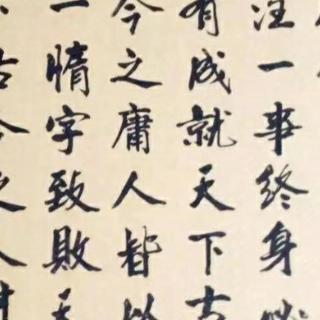 注一事終身必
有成就天下古
今之庸人皆以
一惰字致敗天
古今之人